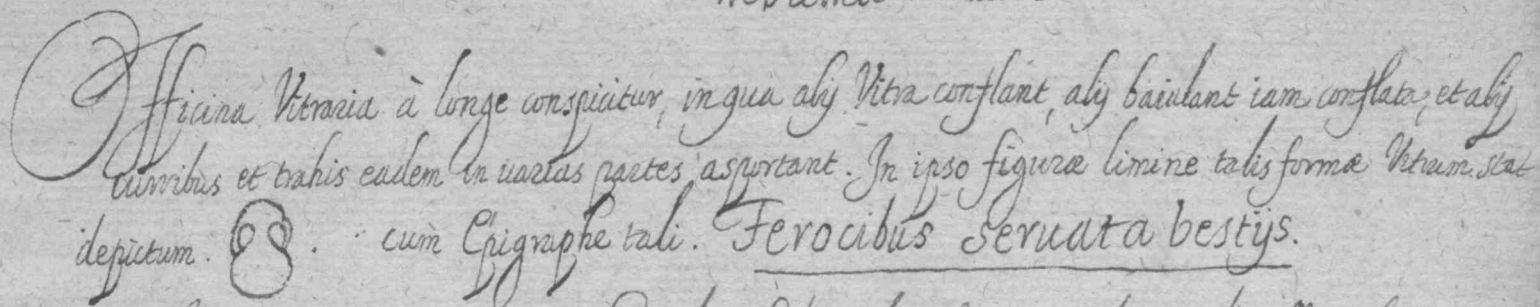 Officina Vitraria à longe conspicitur, in qua alij Vitra conflant, alij baiulant iam conflata, et alij
curribus et trahis eadem in uarias partes asportant. In ipso figuræ limine talis formæ Vitrum stat
depictum. . cum Epigraphe tali. Ferocibus seruata bestijs.